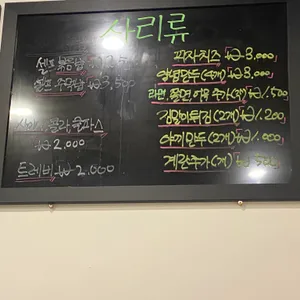 사리류
셀프 볶음밥
셀프 주먹밥 ₩3,500
콜라
₩2,000
트레비 ₩2,000
피자치즈 ₩3,000
(4개) ₩3,000
라면, 쫄면 추가(개) ₩1,500
김말이튀김(2개) ₩1,200
야끼만두(2개) ₩1,000
계란추가(개) ₩500